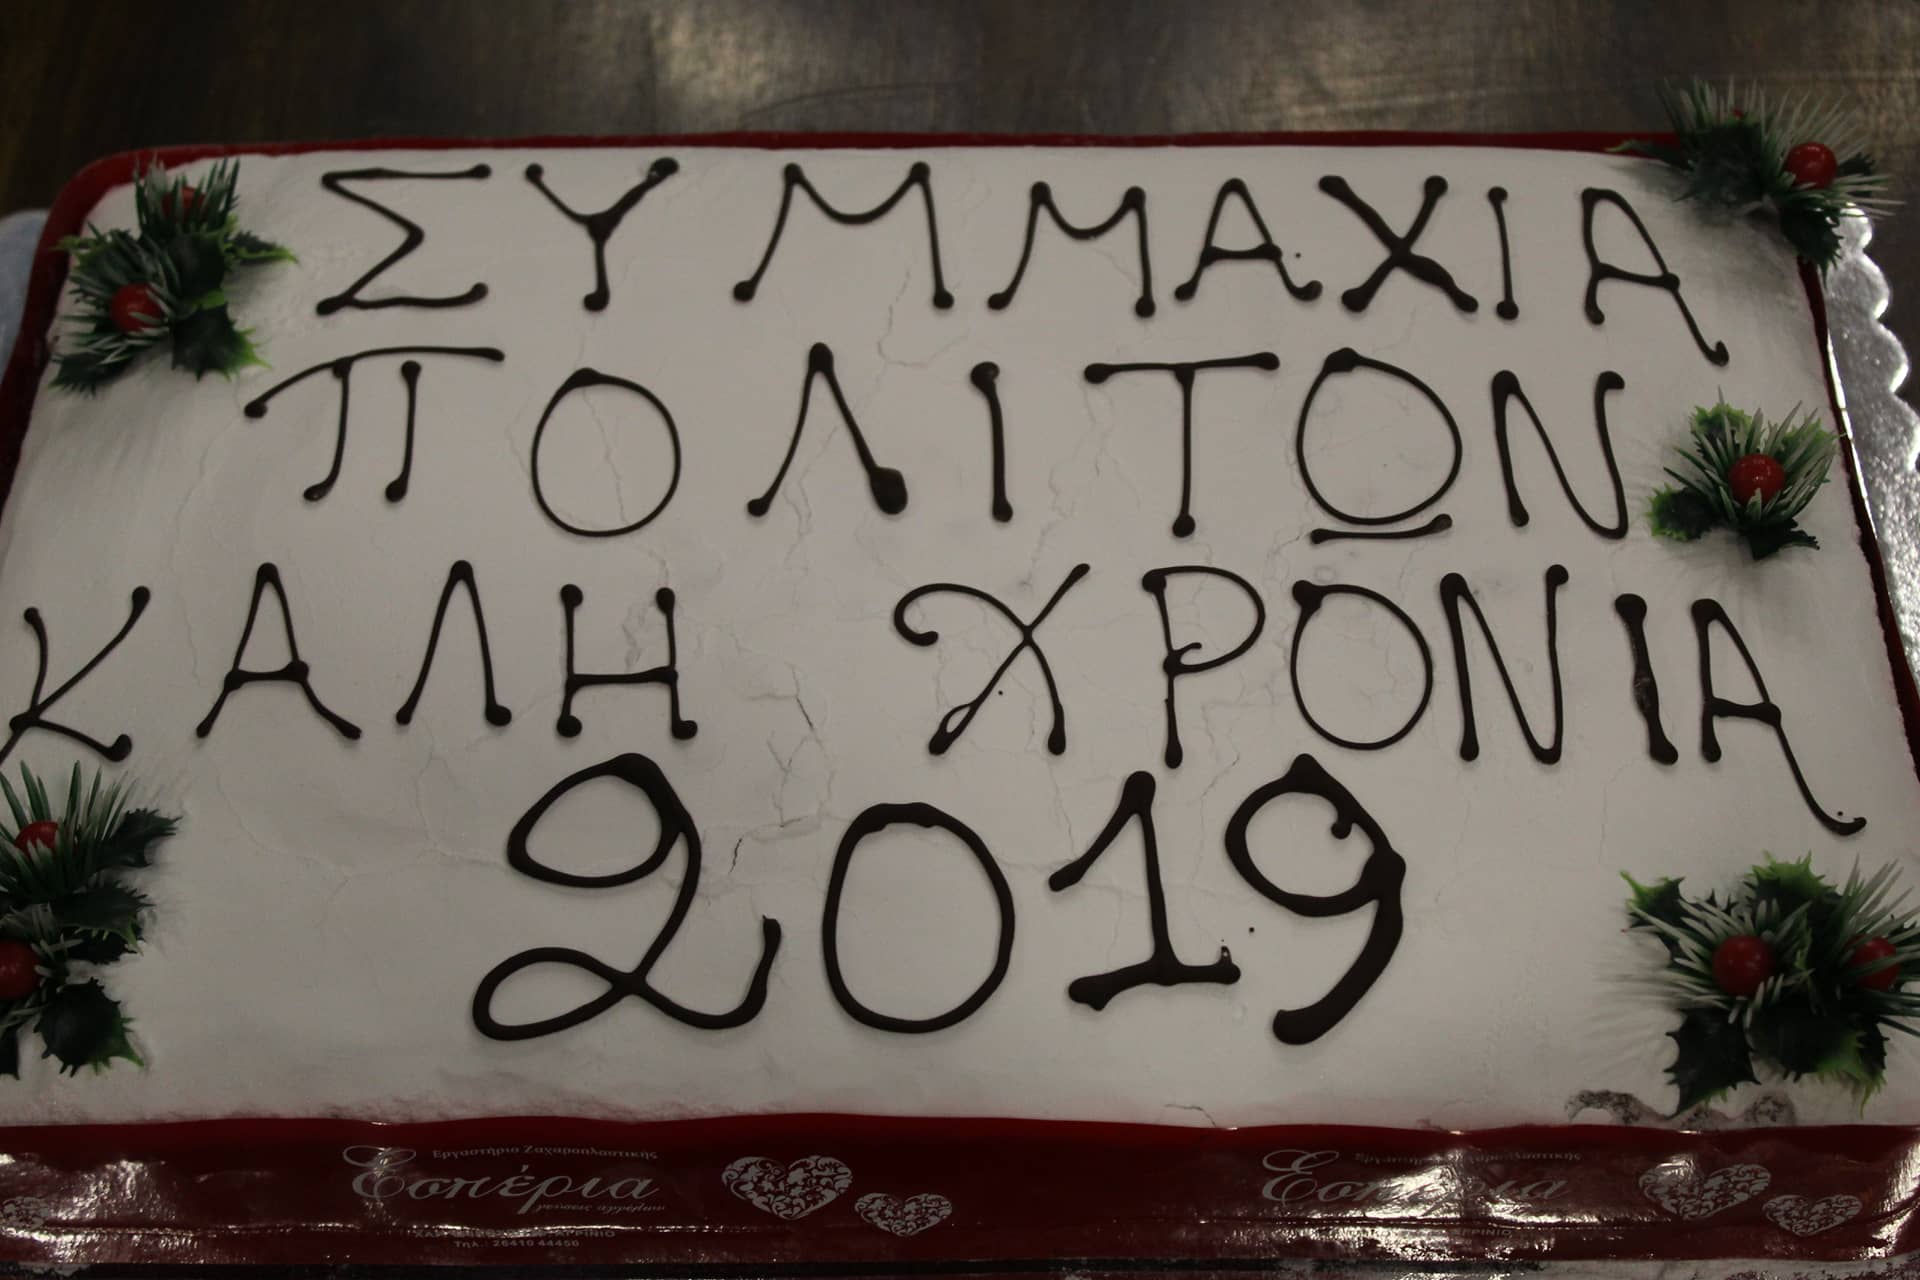 ΣΥΜΜΑΧΙΑ
ΠΟΛΙΤΩΝ
ΚΑΛΗ ΧΡΟΝΙΑ
2019
Εργαστήριο Ζαχαροπλαστικής
Εσπέρια
γεύσεις αγγέλων
ΑΓΡΙΝΙΟ
Τηλ.: 26410 44450
Ζαχαροπλαστικής
Εσπέρια